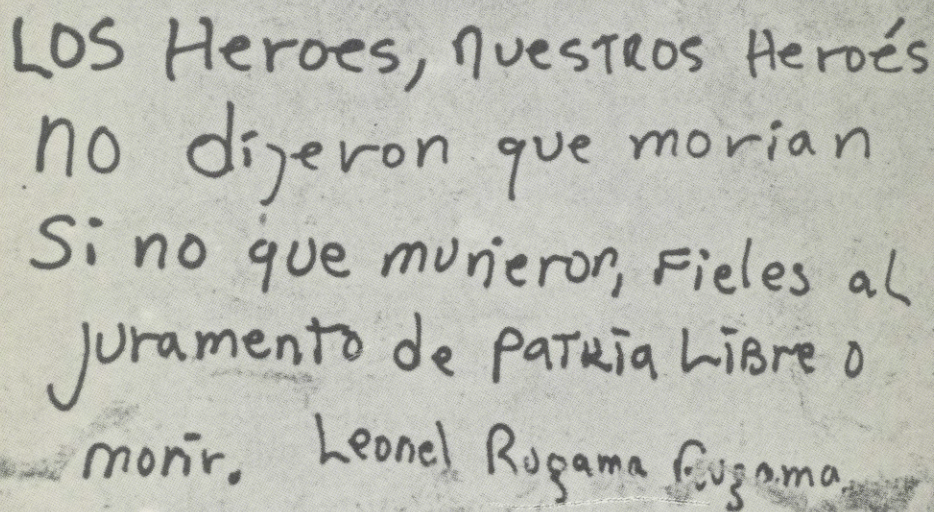 Los Heroes, nuestros Heroés
no dijeron que morian
Si no que murieron, Fieles al
juramento de Patria Libre o
morir. Leonel Rugama Rugama.